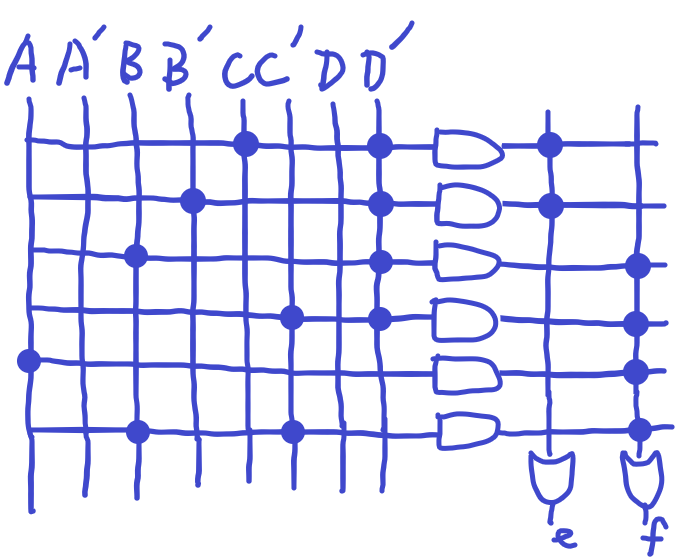 A A' B B' C C' D D'
e f